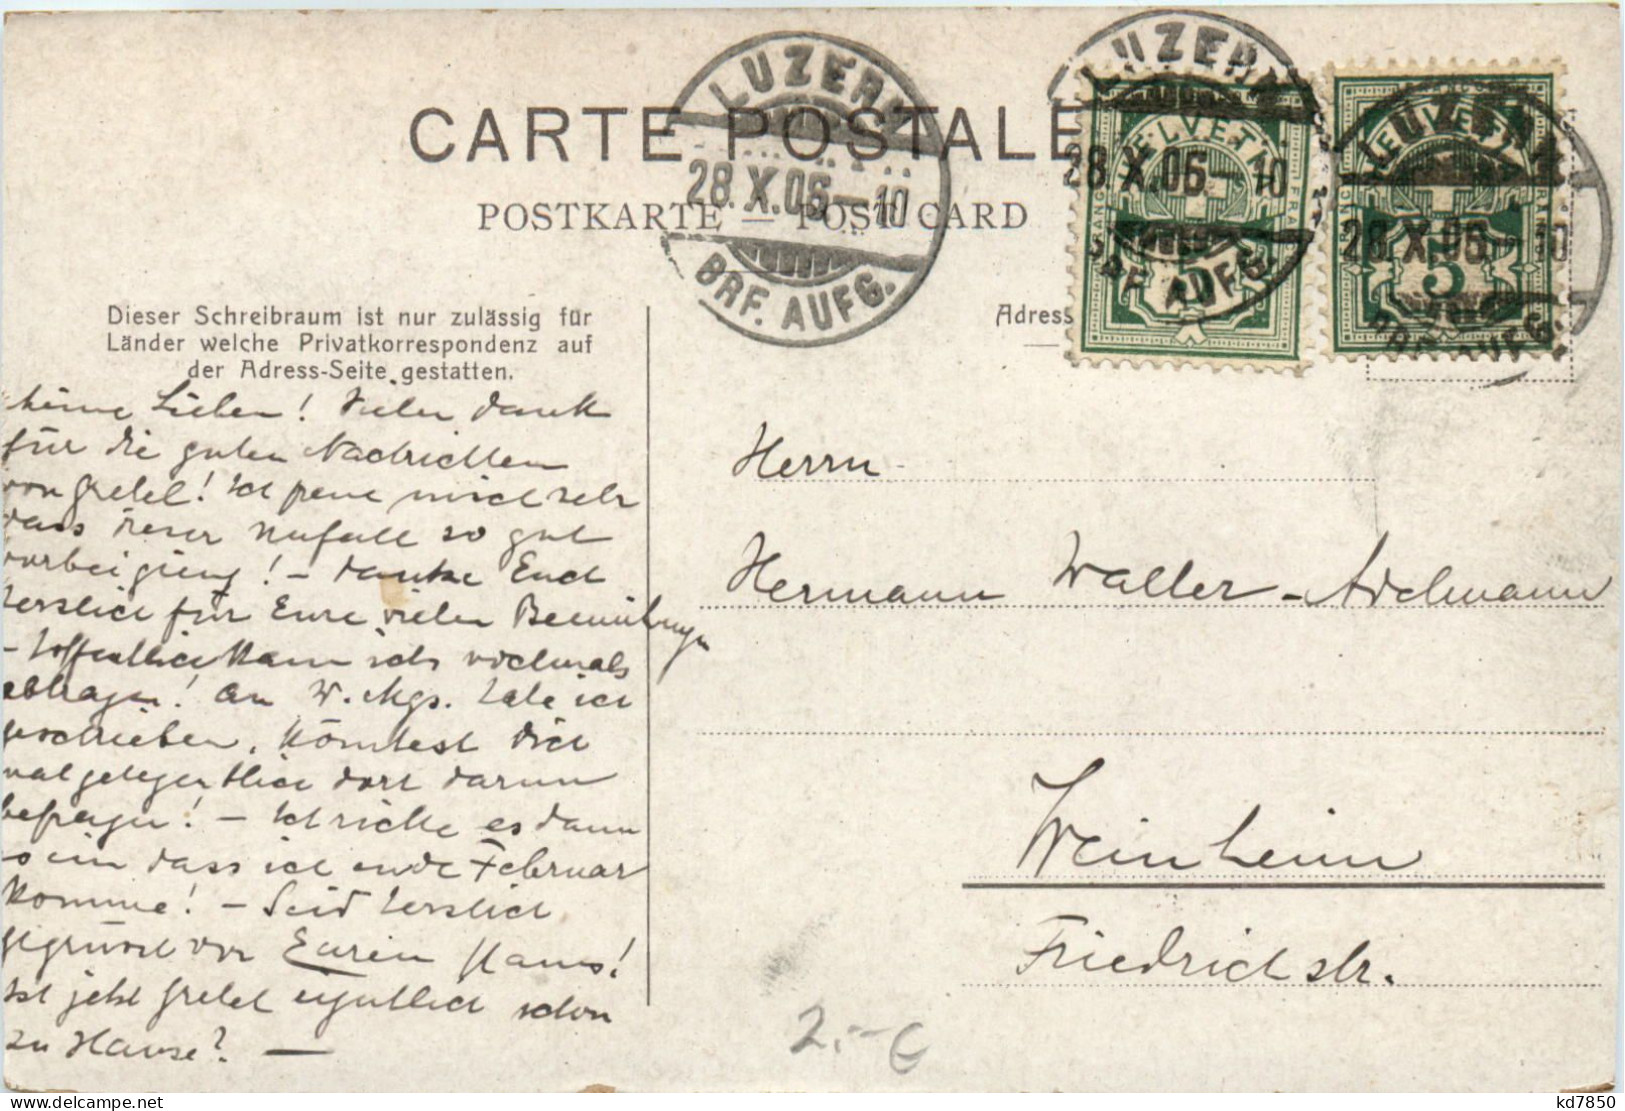 CARTE POSTALE
POSTKARTE — POST CARD
LUZERN
28.X.06—10
BRF. AUFG.
LUZERN
28.X.06—10
BRF. AUFG.
LUZERN
28.X.06—10
BRF. AUFG.
HELVETIA
FRANCO
5
HELVETIA
FRANCO
5
Dieser Schreibraum ist nur zulässig für
Länder welche Privatkorrespondenz auf
der Adress-Seite gestatten.
Adress
Meine Lieben! Vielen Dank
für die guten Nachrichten
von Gretel! Ich freue mich sehr
dass dieser Unfall so gut
vorbeiging! – Danke Euch
herzlich für Eure vielen Bemühungen
– Hoffentlich kann ich's nochmals
abtragen! An W. Mgs. habe ich
geschrieben, könntest Dich
mal gelegentlich dort darum
befragen! – Ich richte es dann
so ein dass ich ende Februar
komme! – Seid herzlich
gegrüsst von Eurem Hans!
Ist jetzt Gretel eigentlich schon
zu Hause? —
Herrn
Hermann Waller-Aschmann
Weinheim
Friedrichstr.
2.-€
kd7850